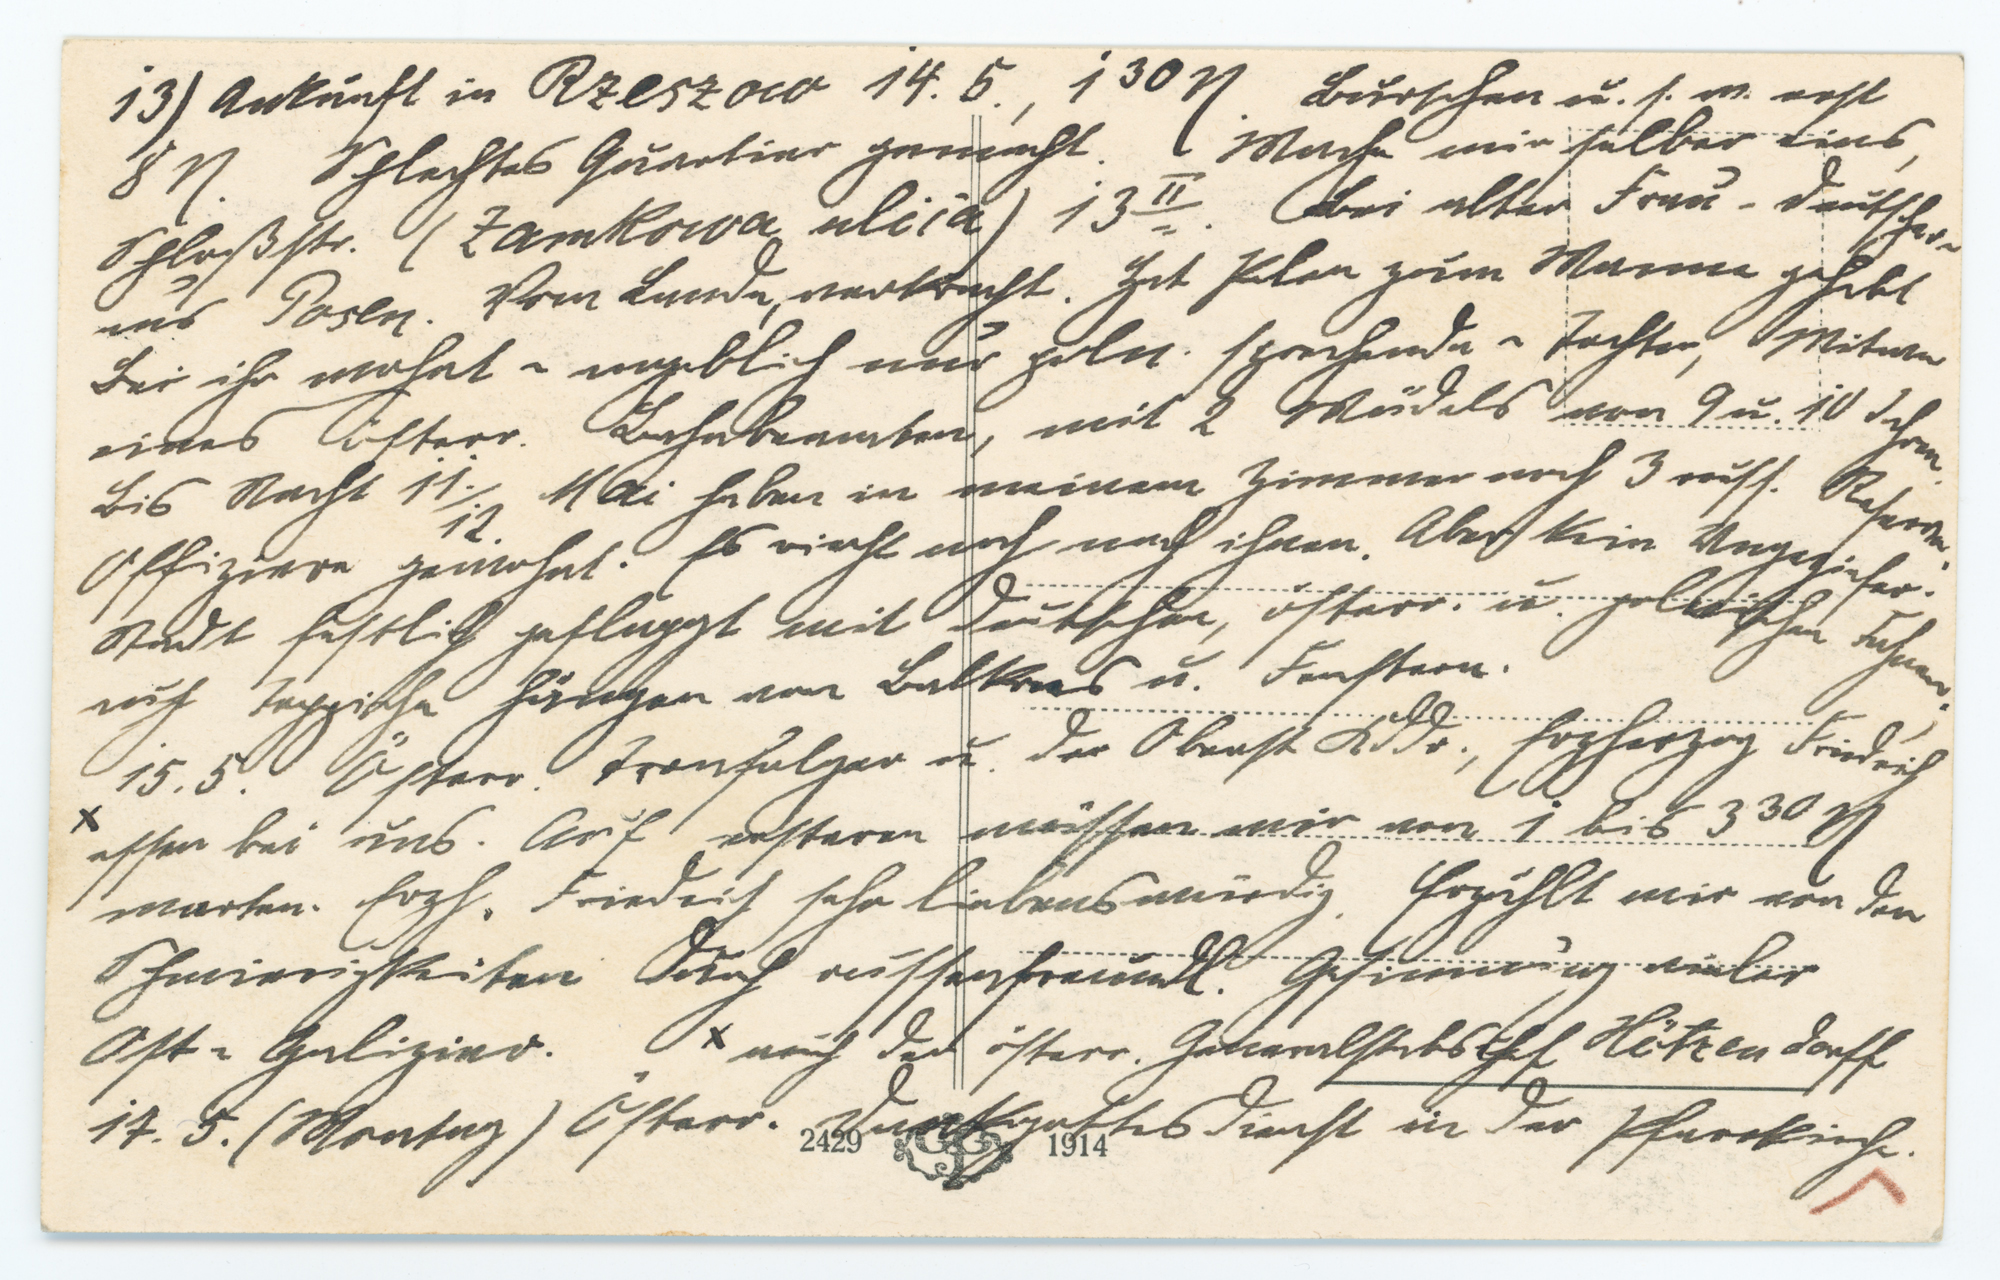 13) Ankunft in Rzeszow 14. 5., 1 30 N Burschen u. s. w. erst
8 N. Schlechtes Quartier gemacht. Mache mir selber eins,
Schloßstr. (Zamkowa ulica) 13 II. Bei alter Frau - Deutsche -
aus Posen. Vom Lande, verkracht. Hat Polen zum Manne gehabt
Bei ihr wohnt - angeblich nur poln. sprechende - Tochter, Witwe
eines österr. Bahnbeamten, mit 2 Mädels von 9 u. 10 Jhren.
Bis Nacht 11./12. Mai haben in meinem Zimmer noch 3 russ. Reserve
Offiziere gewohnt. Es riecht noch nach ihnen. Aber kein Ungeziefer.
Stadt festlich geflaggt mit deutschen, österr. u. polnischen Fahnen,
auch Teppiche hängen von Balkons u. Fenstern.
15. 5. Österr. Tronfolger u. der Oberst Kdr., Erzherzog Friedrich
x
essen bei uns. Auf ersteren müssen wir von 1 bis 3 30 N
warten. Erzh. Friedrich sehr liebenswürdig. Erzählt mir von den
Schwierigkeiten durch russenfreundl. Gesinnung vieler
Ost - Galizier. x auch der österr. Generalstabschef Hötzendorff
17. 5. (Montag) Österr. Dankgottesdienst in der Pfarrkirche.
2429 1914